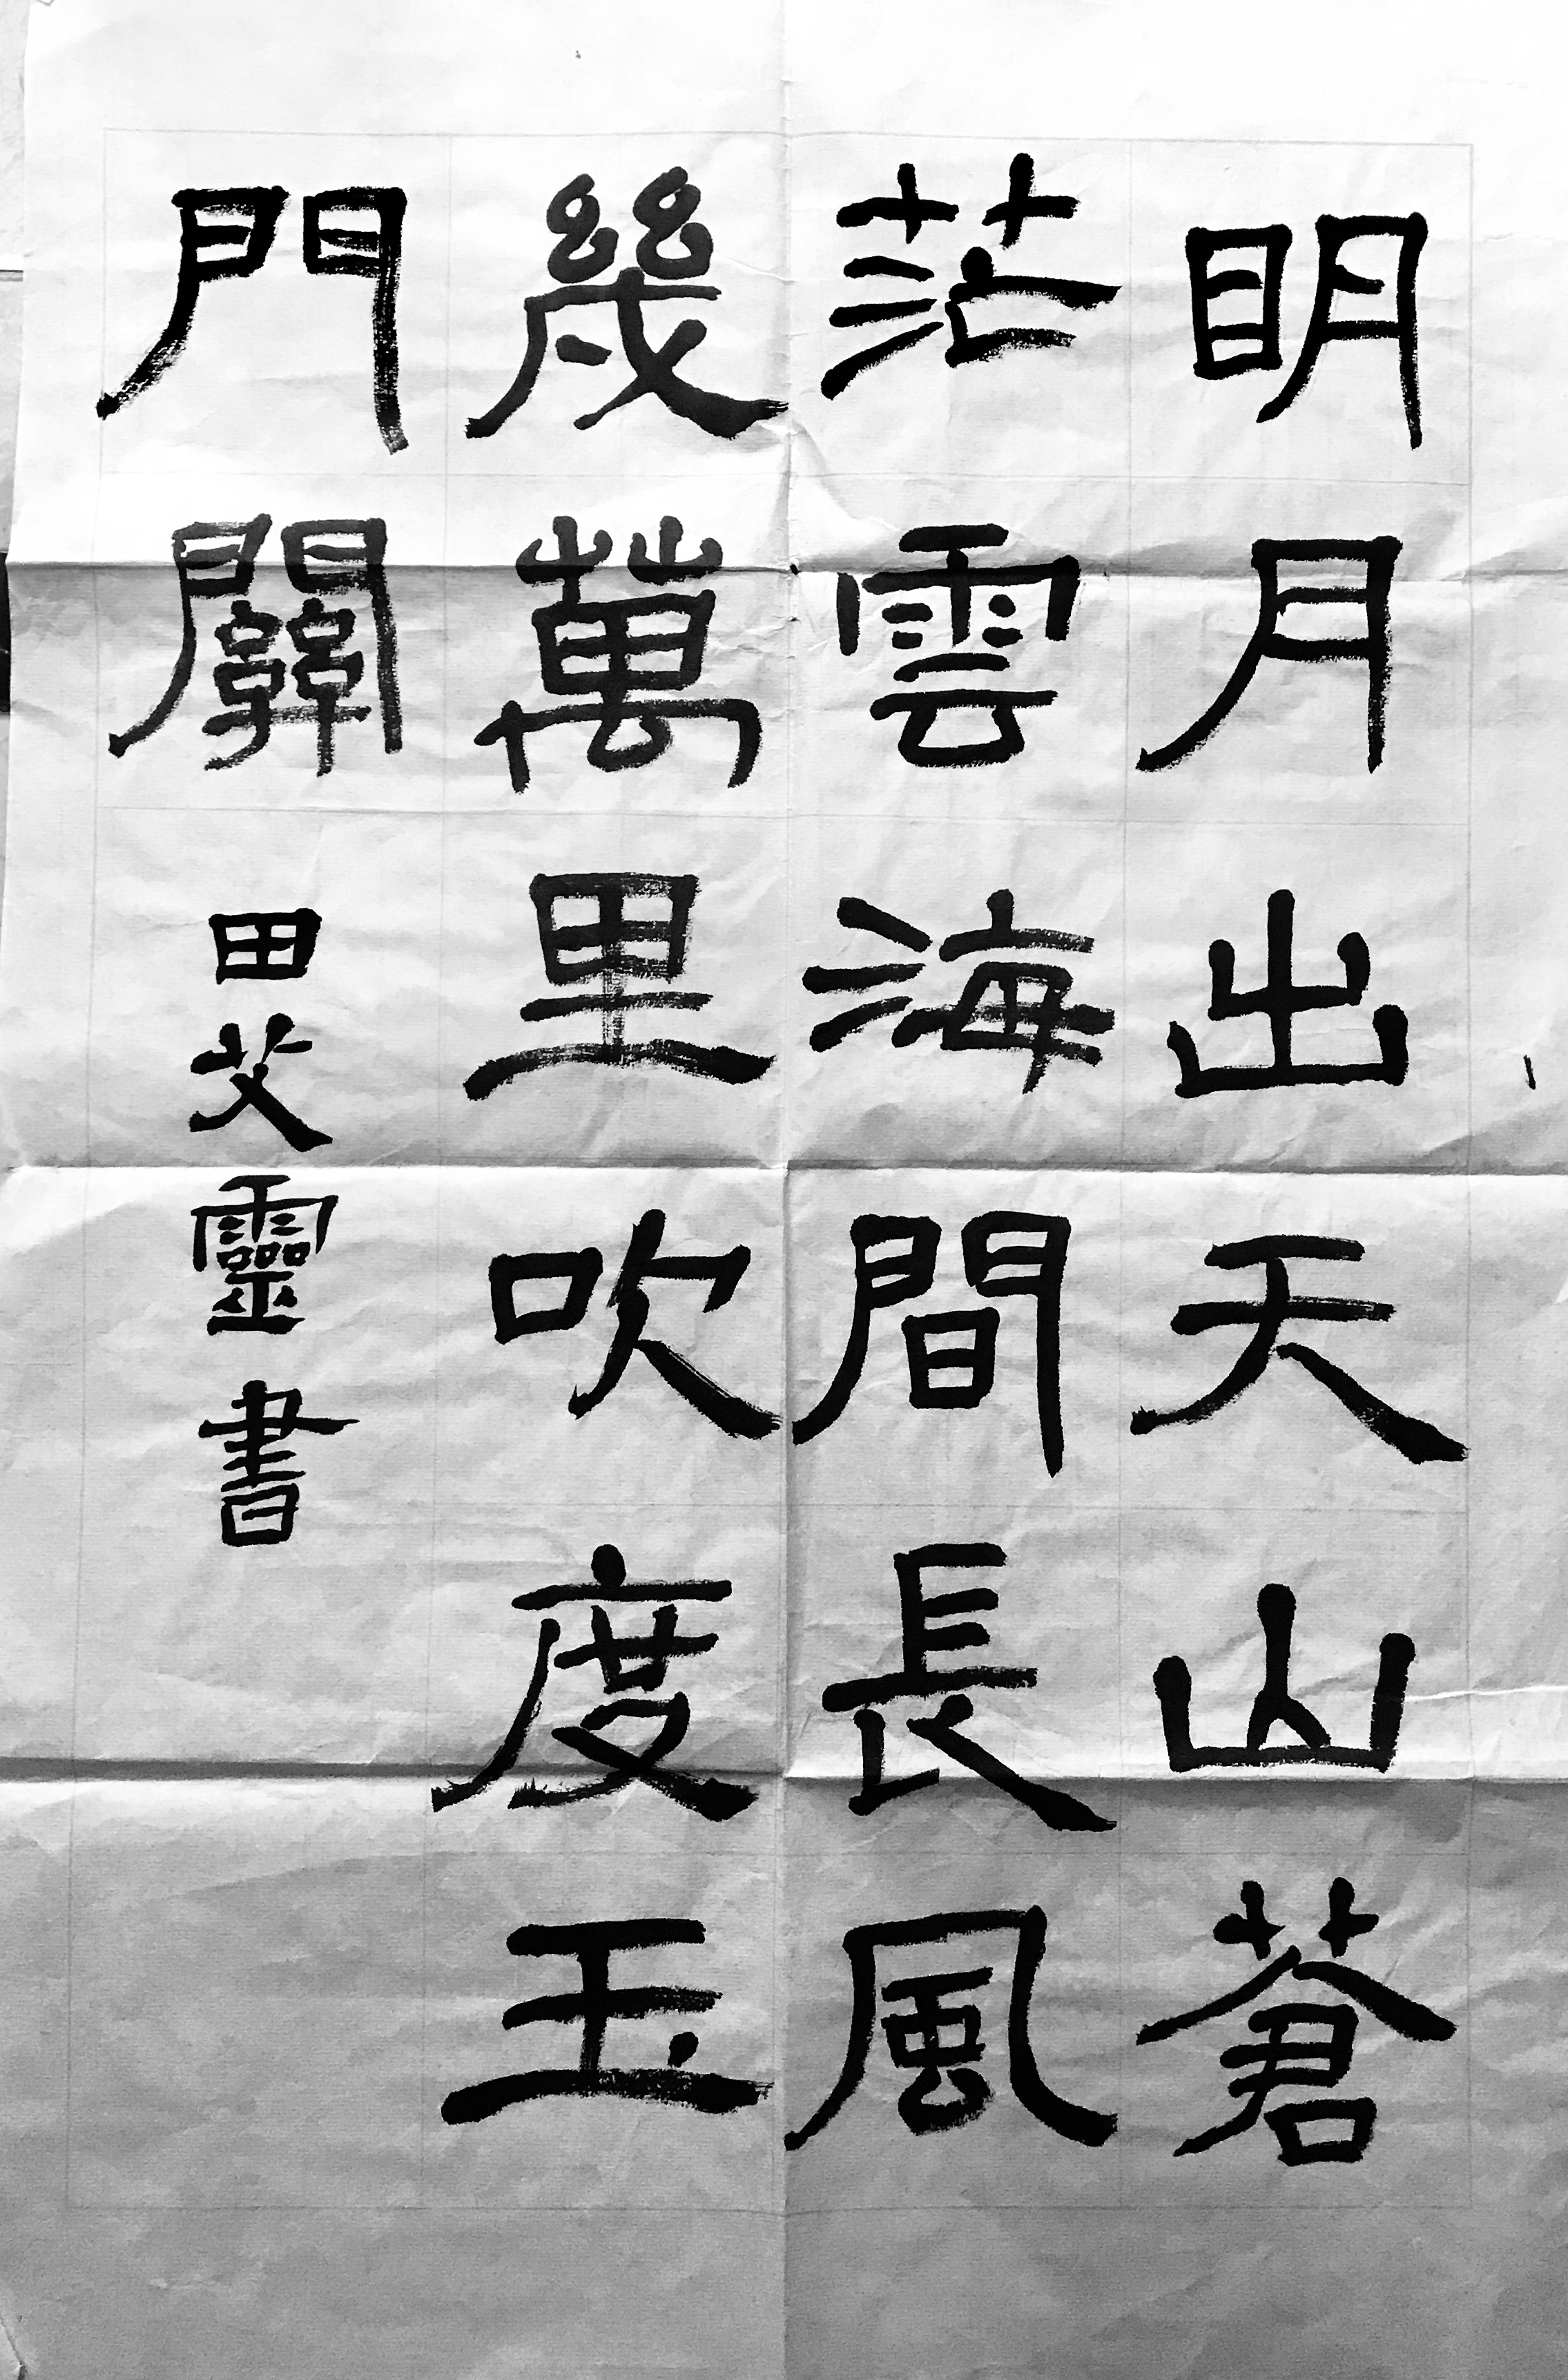 明月出天山蒼
茫雲海間長風
幾萬里吹度玉
門關
田艾靈書